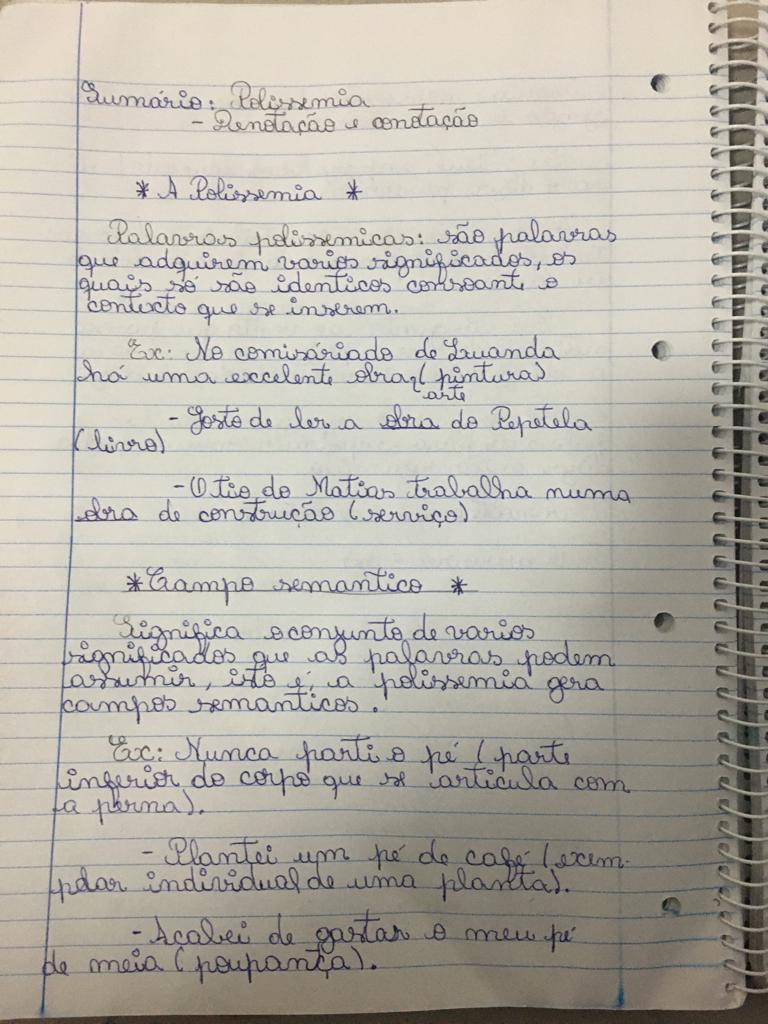 Sumário: Polissemia
- Denotação e conotação
* A Polissemia *
Palavras polissemicas: são palavras
que adquirem varios significados, os
quais só são identicos consoante o
contexto que se inserem.
Ex: No comisáriado de Luanda
há uma excelente obra, (pintura)
arte
- Gosto de ler a obra do Pepetela
(livro)
- O tio do Matias trabalha numa
obra de construção (serviço)
* Campo semantico *
Significa o conjunto de varios
significados que as palavras podem
assumir, isto é, a polissemia gera
campos semanticos.
Ex: Nunca parti o pé (parte
inferior do corpo que se articula com
a perna).
- Plantei um pé de café (exem-
plar individual de uma planta).
- Acabei de gastar o meu pé
de meia (poupança).